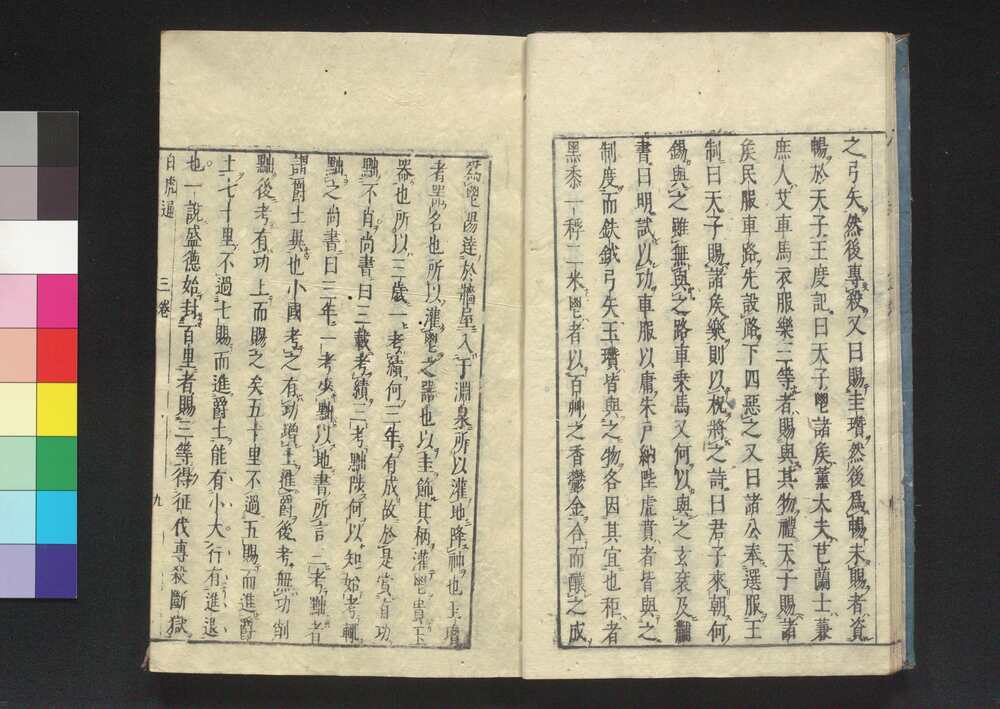 之弓矢然後專殺又曰賜圭瓚然後爲暢未賜者資
暢於天子王度記曰天子鬯諸矦薰大夫芑蘭士蒹
庶人艾車馬衣服樂三等者賜與其物禮天子賜諸
矦民服車路先設路下四惡之又曰諸公奉選服王
制曰天子賜諸矦樂則以柷將之詩曰君子來朝何
錫與之雖無與之路車乗馬又何以與之玄衮及黼
書曰明試以功車服以庸朱戸納陛虎賁者皆與之
制度而鈇鉞弓矢玉瓚皆與之物各因其宜也秬者
黑黍一稃二米鬯者以百艸之香鬱金合而釀之成
爲鬯昜達於牆屋入于淵泉所以灌地降神也玉瓚
者噐名也所以灌鬯之噐也以圭飾其柄灌鬯貴玉
器也所以三歳一考績何三年有成故於是賞有功
黜不肖尚書曰三載考績三考黜陟何以知始考輒
黜之尚書曰三年一考少黜以地書所言三考黜者
謂爵土異也小國考之有功増土進爵後考無功削
黜後考有功上而賜之矣五十里不過五賜而進爵
土七十里不過七賜而進爵土能有小大行有進退
也一說盛德始封百里者賜三等得征伐專殺斷獄
白虎通
三卷
九